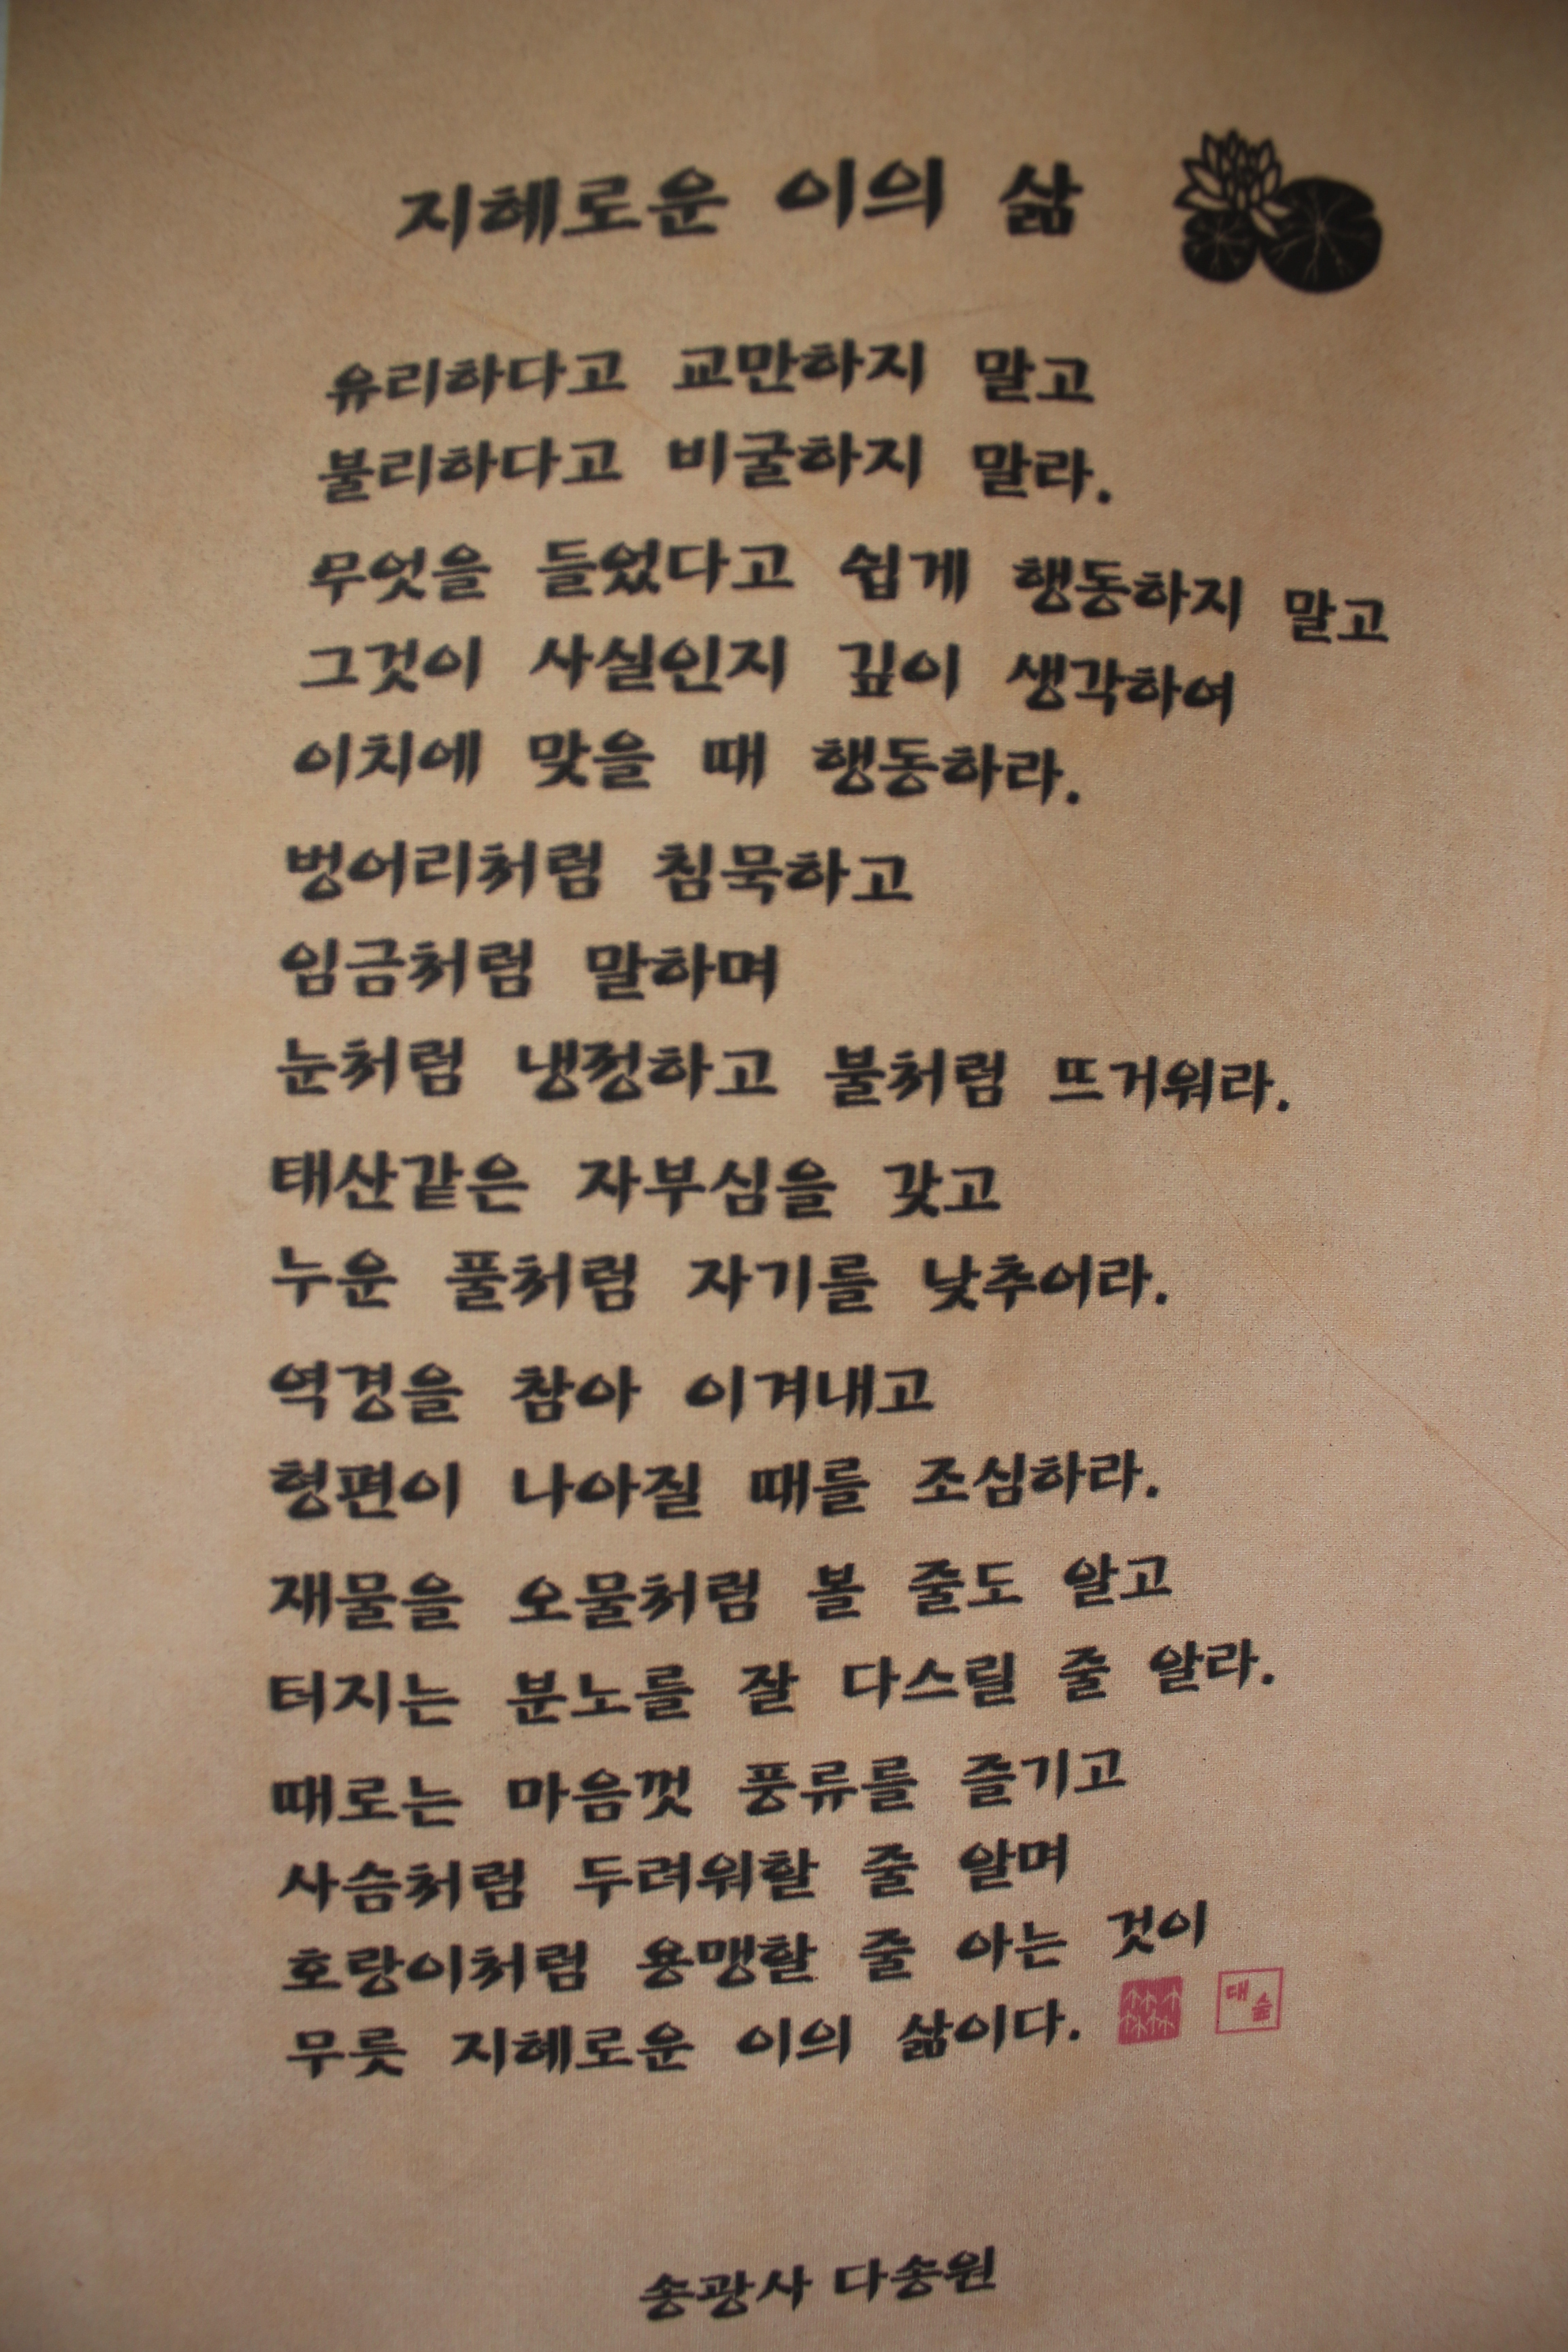 지혜로운 이의 삶
유리하다고 교만하지 말고
불리하다고 비굴하지 말라.
무엇을 들었다고 쉽게 행동하지 말고
그것이 사실인지 깊이 생각하여
이치에 맞을 때 행동하라.
벙어리처럼 침묵하고
임금처럼 말하며
눈처럼 냉정하고 불처럼 뜨거워라.
태산같은 자부심을 갖고
누운 풀처럼 자기를 낮추어라.
역경을 참아 이겨내고
형편이 나아질 때를 조심하라.
재물을 오물처럼 볼 줄도 알고
터지는 분노를 잘 다스릴 줄 알라.
때로는 마음껏 풍류를 즐기고
사슴처럼 두려워할 줄 알며
호랑이처럼 용맹할 줄 아는 것이
무릇 지혜로운 이의 삶이다.
대숲
송광사 다송원